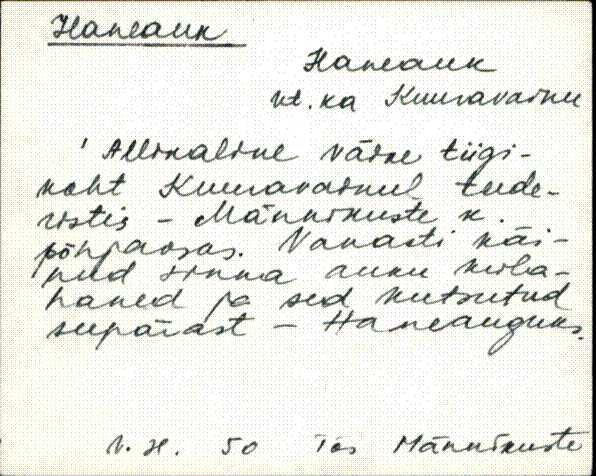 Haneauk
Haneauk
vt. ka Kuuravainu
' Allikaline väike tiigi-
koht Kuuravainul teede-
ristis - Männikuste k.
põhjaosas. Vanasti käi-
nud sinna auku küla-
haned ja sed kutsutud
seepärast - Haneauguks.
V. H. 50 Tõs Männikuste